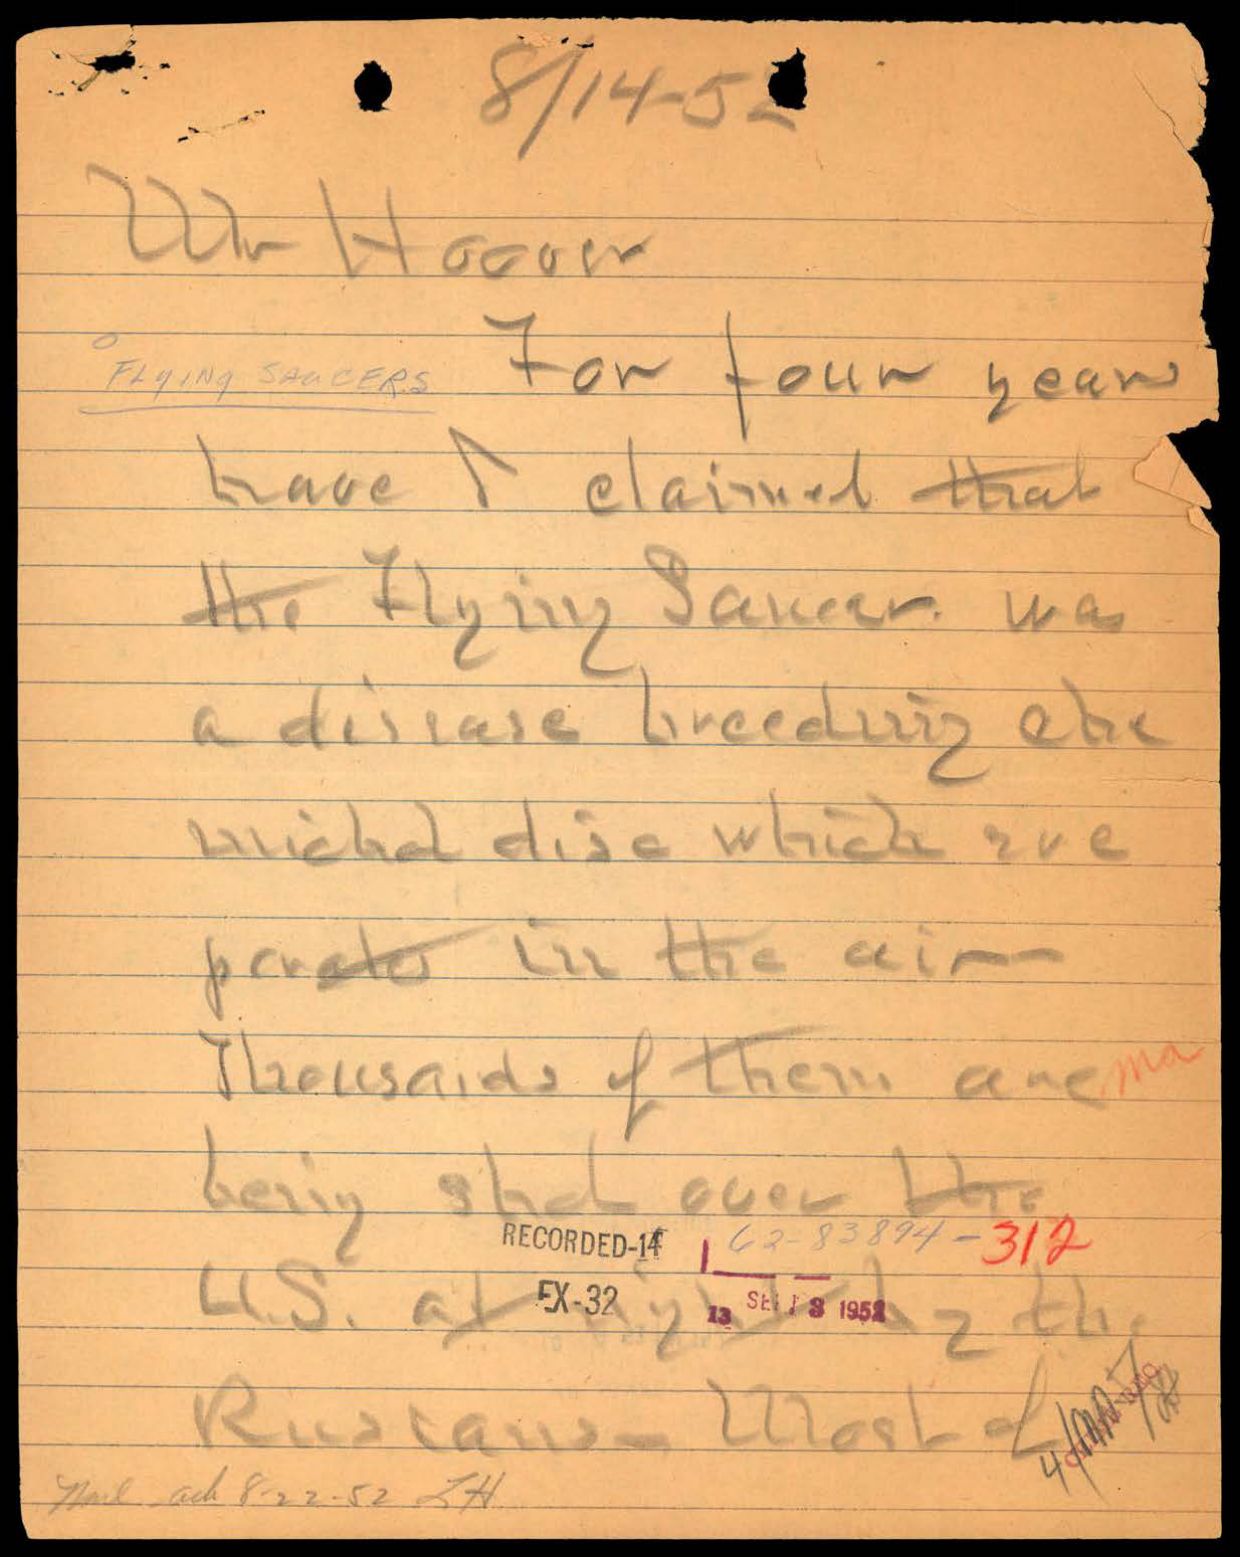 8/14-52
Mr Hoover
FLYING SAUCERS
For four years
have I claimed that
the Flying Saucer was
a disease breeding che
mical disc which eva
porates in the air
Thousands of them are
ma
being shot over the
RECORDED-14 62-83894-312
U.S. at night by the
EX-32
13 SEP 3 1952
Russians Most of
ack 8-22-52 LH